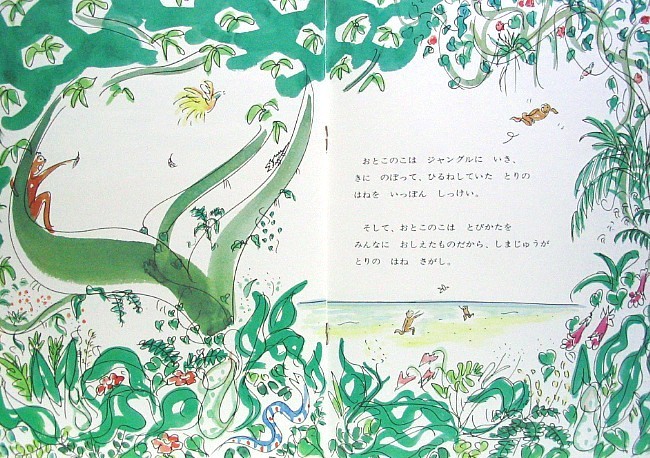 おとこのこは ジャングルに いき、
きに のぼって、ひるねしていた とりの
はねを いっぽん しっけい。
そして、おとこのこは とびかたを
みんなに おしえたものだから、しまじゅうが
とりの はね さがし。